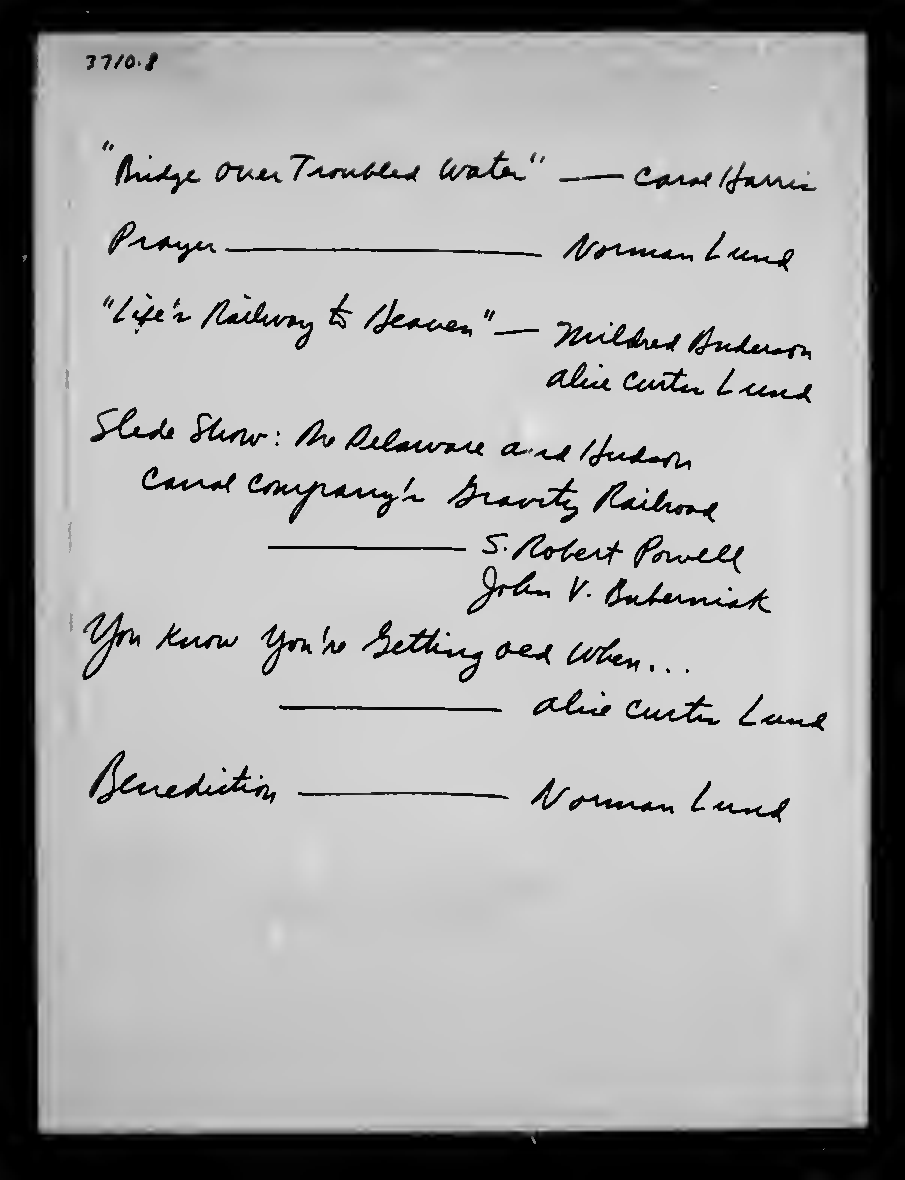 3710.8
"Bridge Over Troubled Water" — Carol Harris
Prayer — Norman Lund
"Life's Railway to Heaven" — Mildred Anderson
Alice Curtis Lund
Slide Show: The Delaware and Hudson
Canal Company's Gravity Railroad
— S. Robert Powell
John V. Buberniak
You Know You're Getting Old When...
— Alice Curtis Lund
Benediction — Norman Lund